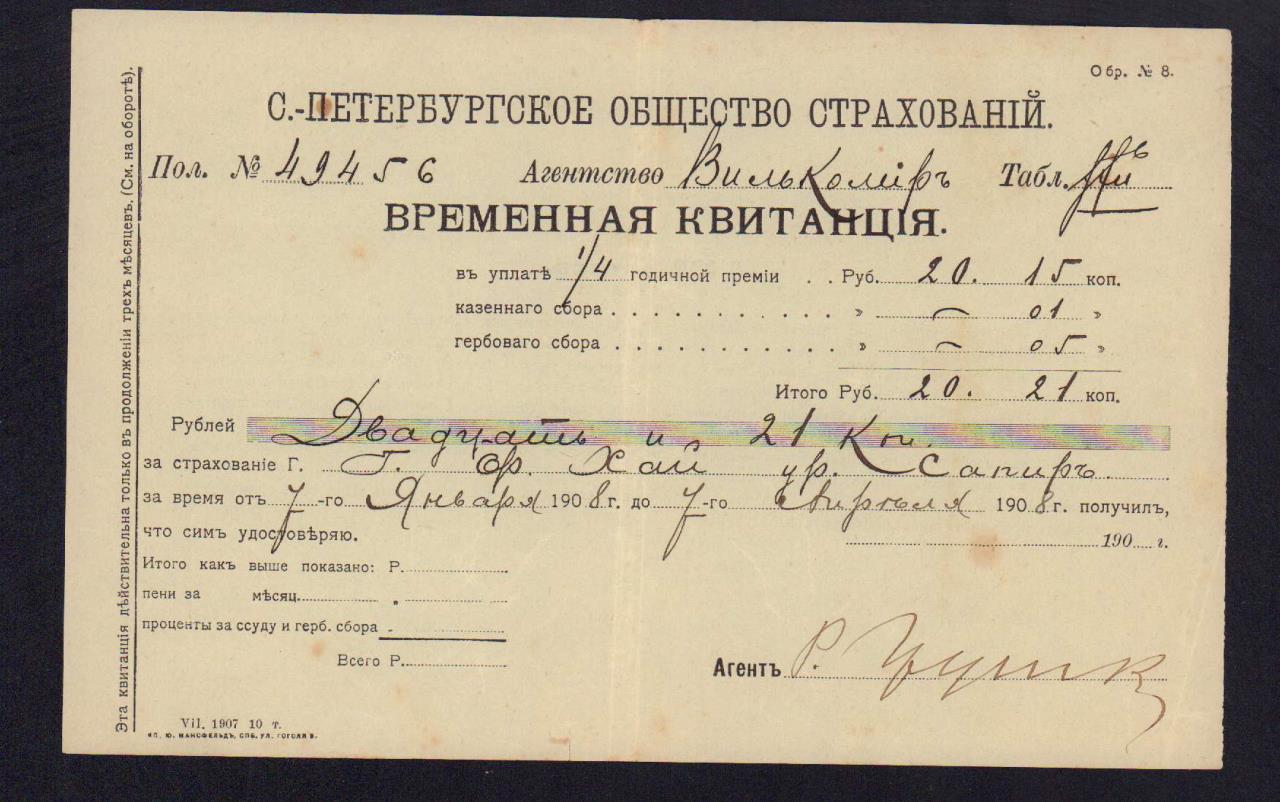 Обр. № 8.
С.-ПЕТЕРБУРГСКОЕ ОБЩЕСТВО СТРАХОВАНІЙ.
Пол. № 49456 Агентство Вилькоміръ Табл.
ВРЕМЕННАЯ КВИТАНЦІЯ.
въ уплатѣ 1/4 годичной преміи . . Руб. 20. 15 коп.
казеннаго сбора . . . . . . . . . . . . » — 01 »
гербоваго сбора . . . . . . . . . . . . » — 05 »
Итого Руб. 20. 21 коп.
Рублей Двадцать и 21 коп.
за страхованіе Г. Г. Хай Сапиръ.
за время отъ 7-го Января 1908 г. до 7-го Апрѣля 1908 г. получилъ,
что симъ удостовѣряю.
190 г.
Итого какъ выше показано: Р.
пени за мѣсяц. „
проценты за ссуду и герб. сбора -
Всего Р.
Агентъ Р.
VII. 1907 10 т.
Ю. МАНСФЕЛЬДЪ, СПБ. УЛ. ГОГОЛЯ
Эта квитанція дѣйствительна только въ продолженіи трехъ мѣсяцевъ. (См. на оборотѣ).